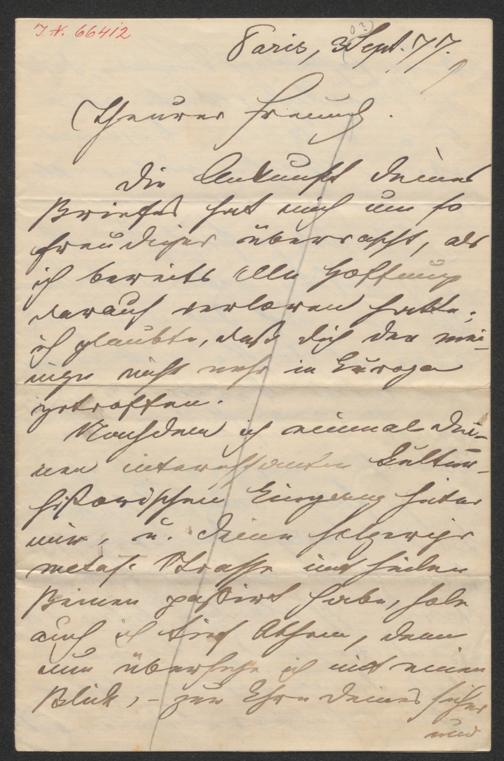 J.N. 66412
Paris, 3 Sept. 77.
Theurer Freund.
Die Ankunft deines
Briefes hat mich um so
freudiger überrascht, als
ich bereits alle Hoffnung
darauf verloren hatte;
ich glaubte, daß dich der mei-
nige nicht mehr in Europa
getroffen.
Nachdem ich einmal dei-
nen interessanten Kultur-
historischen Eingang hinter
mir, u. deine
Strasse mit heilen
Beinen passirt habe, hole
auch ich tief Athem, denn
nun übersehe ich mit einem
Blick, – zur Ehre deines
und